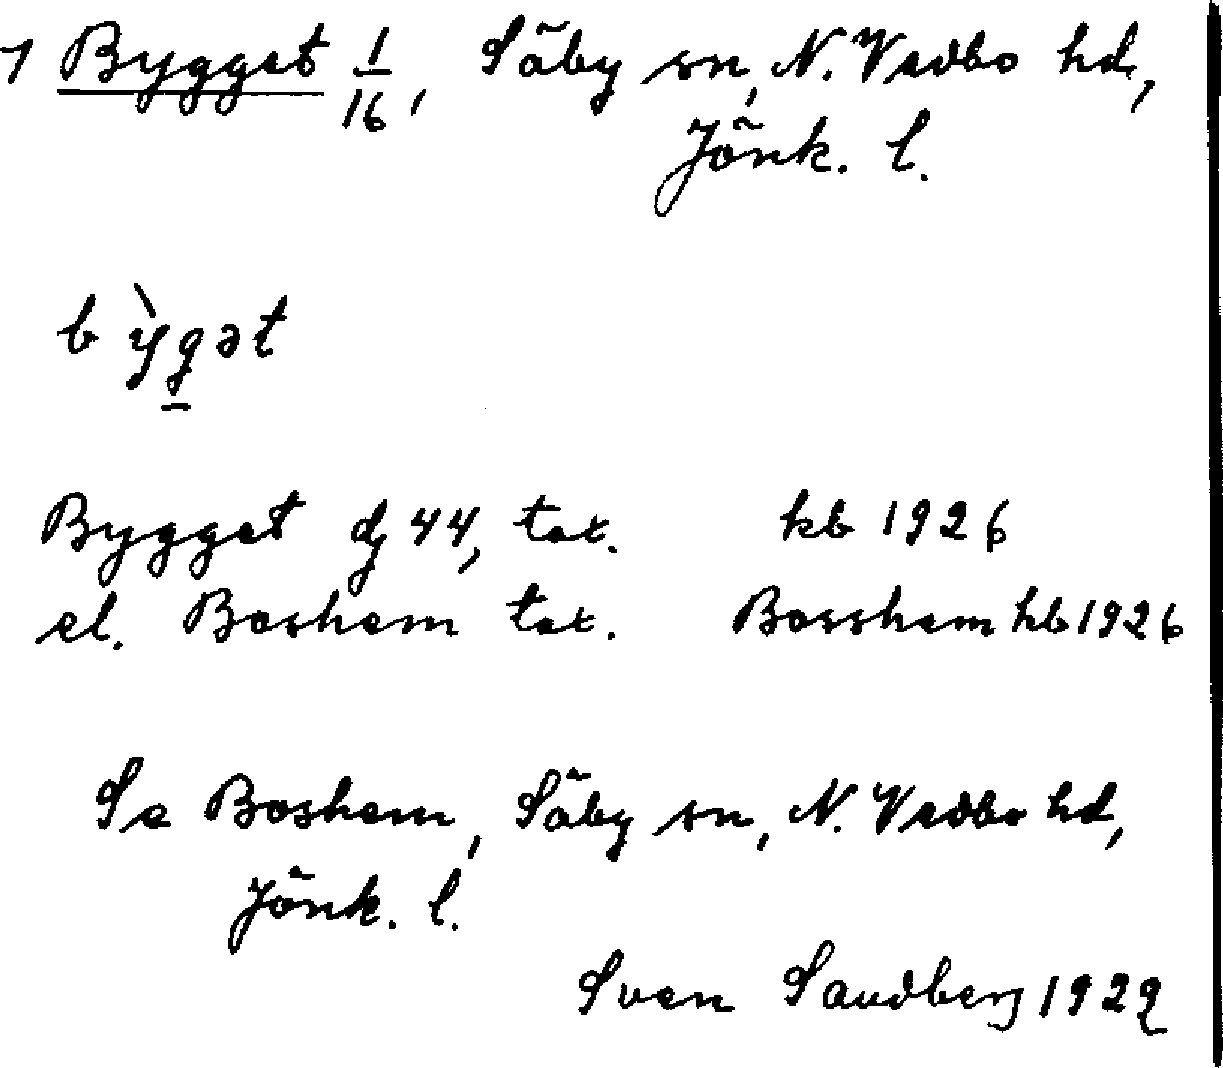 1 Bygget 1/16, Säby sn, N. Vedbo hd,
Jönk. l.
bỳgət
Bygget dj 44, tax. kb 1926
el. Boshem tax. Bosshem hb 1926
Se Boshem, Säby sn, N. Vedbo hd,
Jönk. l.
Sven Sandberg 1929